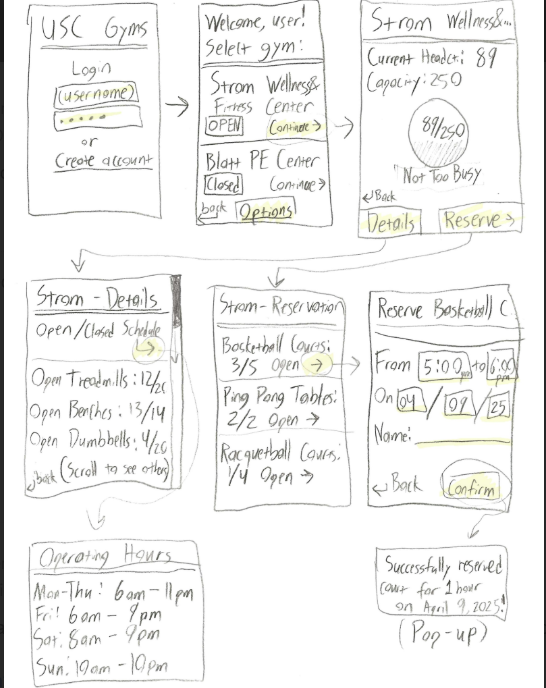 USC Gyms
Login
(username)
.....
or
Create account
Welcome, user!
Select gym:
Strom Wellness &
Fitness Center
OPEN Continue →
Blatt PE Center
Closed Continue →
back Options
Strom Wellness &...
Current Headct: 89
Capacity: 250
89/250
"Not Too Busy
↲Back
Details Reserve →
Strom - Details
Open/Closed Schedule
↳
Open Treadmills: 12/20
Open Benches: 13/14
Open Dumbbells: 4/20
↲back (Scroll to see others)
Strom - Reservation
Basketball Courts:
3/5 Open →
Ping Pong Tables:
2/2 Open →
Racquetball Courts:
1/4 Open →
Reserve Basketball C
From 5:00 pm to 6:00 pm
On 04 / 09 / 25
Name:
↲ Back Confirm
Operating Hours
Mon-Thu: 6am - 11pm
Fri: 6am - 9pm
Sat: 8am - 9pm
Sun: 10am - 10pm
Successfully reserved
court for 1 hour
on April 9, 2025!
(Pop-up)